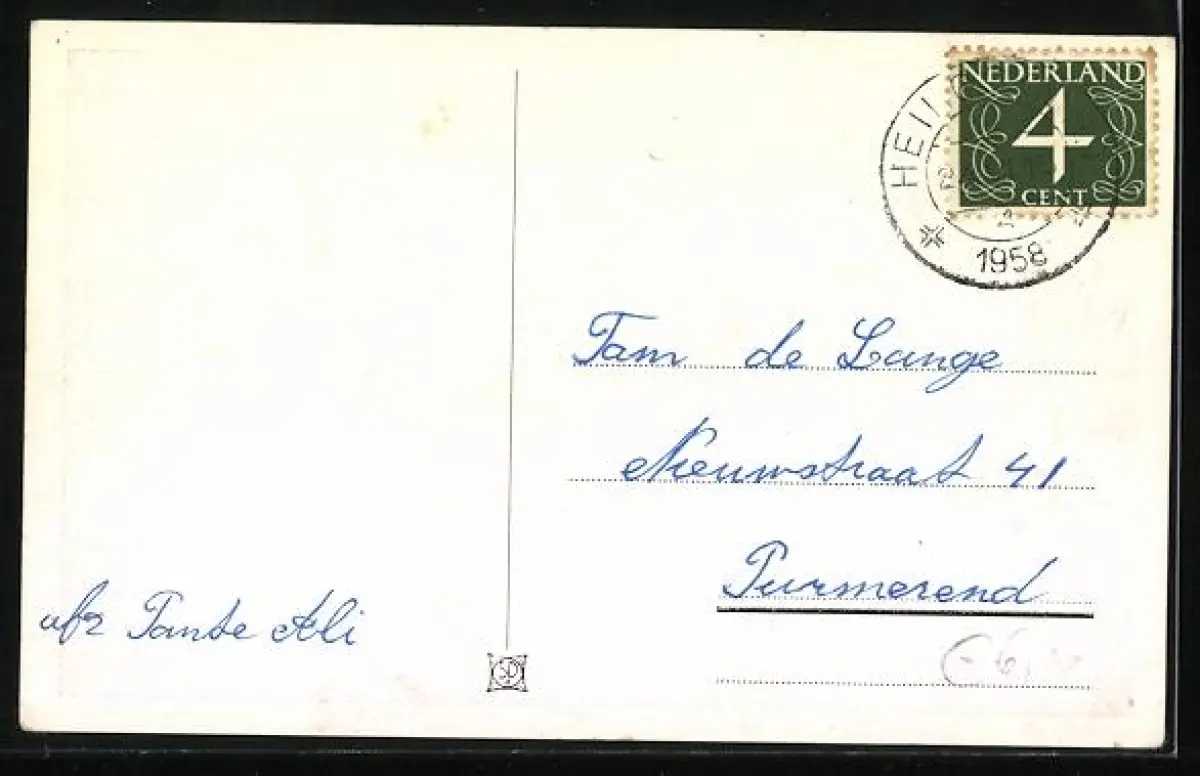 NEDERLAND
4
CENT
HEIL
1958
Tam de Lange
Nieuwstraat 41
Purmerend
afz Tante Ali